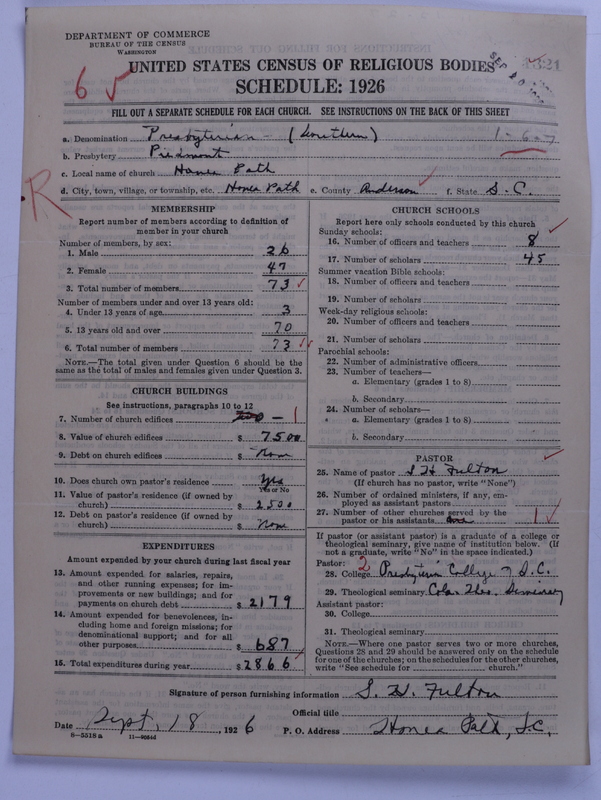 DEPARTMENT OF COMMERCE
BUREAU OF THE CENSUS
WASHINGTON
UNITED STATES CENSUS OF RELIGIOUS BODIES
SCHEDULE: 1926
6
FILL OUT A SEPARATE SCHEDULE FOR EACH CHURCH. SEE INSTRUCTIONS ON THE BACK OF THIS SHEET
a. Denomination Presbyterian - (Southern) 1-6-7
b. Presbytery Piedmont
c. Local name of church Honea Path
d. City, town, village, or township, etc. Honea Path e. County Anderson f. State S. C.
R
MEMBERSHIP
Report number of members according to definition of
member in your church
Number of members, by sex:
1. Male 26
2. Female 47
3. Total number of members 73
Number of members under and over 13 years old:
4. Under 13 years of age 3
5. 13 years old and over 70
6. Total number of members 73
NOTE.—The total given under Question 6 should be
same as the total of males and females given under Question 3.
CHURCH BUILDINGS
See instructions, paragraphs 10 to 12
7. Number of church edifices 1
8. Value of church edifices $ 7500
9. Debt on church edifices $ None
10. Does church own pastor's residence Yes
Yes or No
11. Value of pastor's residence (if owned by
church) $ 2500
12. Debt on pastor's residence (if owned by
church) $ None
EXPENDITURES
Amount expended by your church during last fiscal year
13. Amount expended for salaries, repairs,
and other running expenses; for im-
provements or new buildings; and for
payments on church debt $ 2179
14. Amount expended for benevolences, in-
cluding home and foreign missions; for
denominational support; and for all
other purposes $ 687
15. Total expenditures during year $ 2866
CHURCH SCHOOLS
Report here only schools conducted by this church
Sunday schools:
16. Number of officers and teachers 8
17. Number of scholars 45
Summer vacation Bible schools:
18. Number of officers and teachers
19. Number of scholars
Week-day religious schools:
20. Number of officers and teachers
21. Number of scholars
Parochial schools:
22. Number of administrative officers
23. Number of teachers—
a. Elementary (grades 1 to 8)
b. Secondary
24. Number of scholars—
a. Elementary (grades 1 to 8)
b. Secondary
PASTOR
25. Name of pastor S H Fulton
(If church has no pastor, write "None")
26. Number of ordained ministers, if any, em-
ployed as assistant pastors
27. Number of other churches served by the
pastor or his assistants One 1
If pastor (or assistant pastor) is a graduate of a college or
theological seminary, give name of institution below. (If
not a graduate, write "No" in the space indicated.)
Pastor: 2
28. College Presbyterian College of S. C.
29. Theological seminary Cola. Theo. Seminary
Assistant pastor:
30. College
31. Theological seminary
NOTE.—Where one pastor serves two or more churches,
Questions 28 and 29 should be answered only on the schedule
for one of the churches; on the schedules for the other churches,
write "See schedule for church."
Signature of person furnishing information S. H. Fulton
Official title
Date Sept. 18, 1926 P. O. Address Honea Path, S.C.
8—5518 a